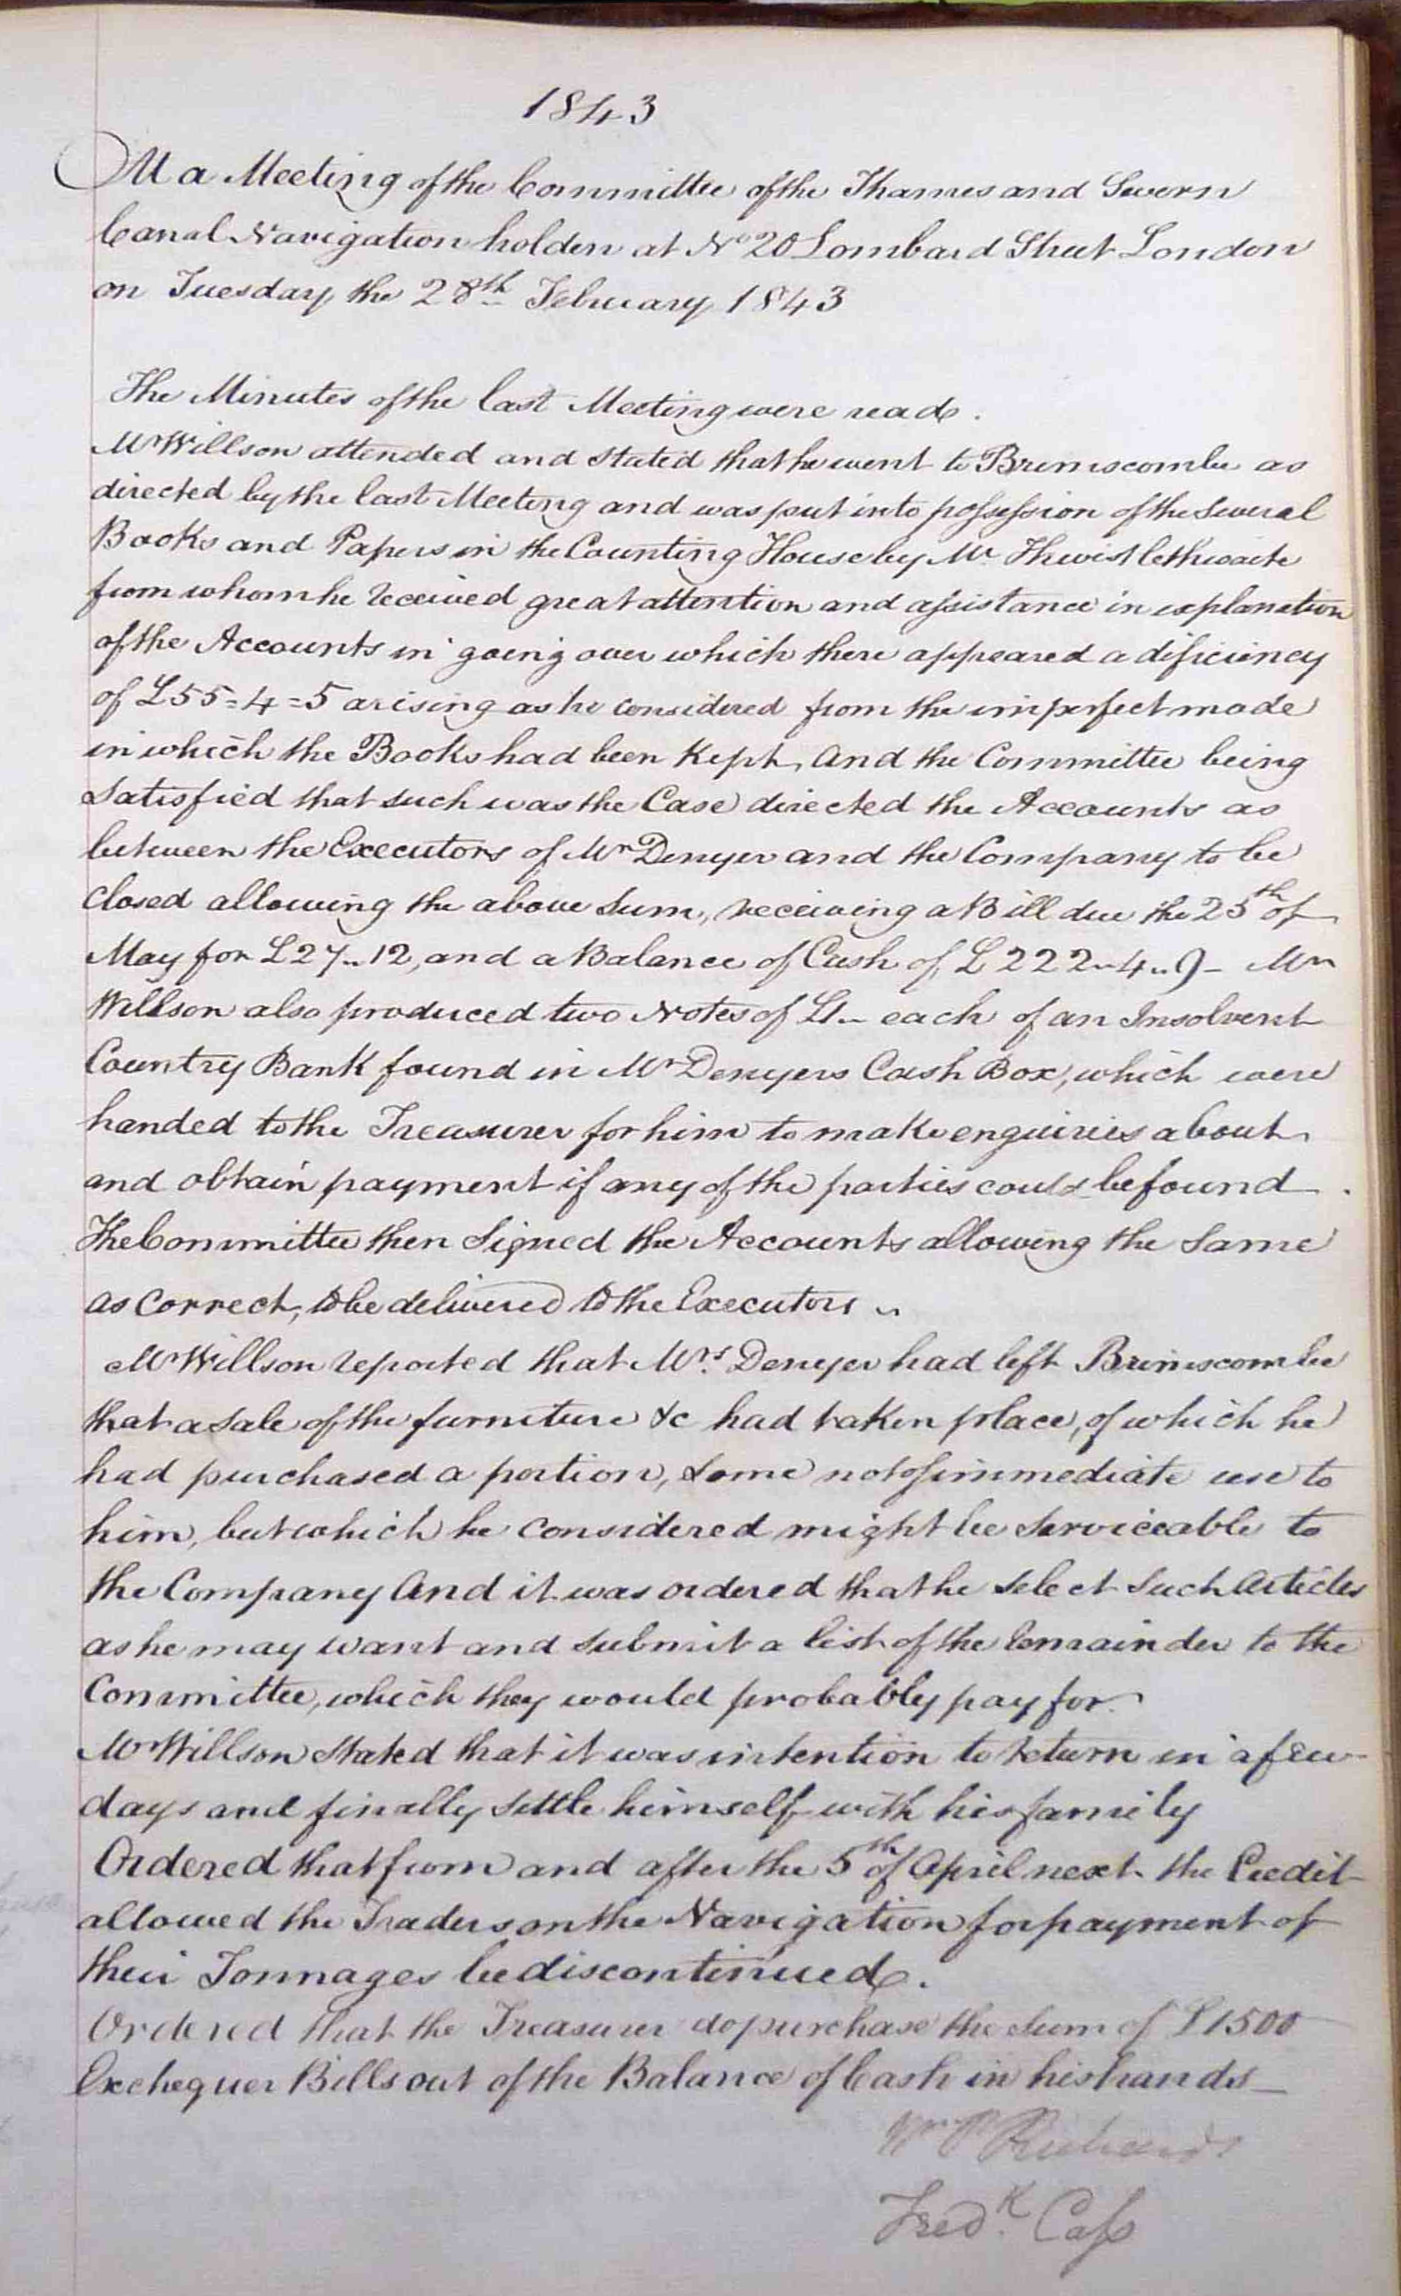 1843
At a Meeting of the Committee of the Thames and Severn
Canal Navigation holden at No 20 Lombard Street London
on Tuesday the 28th February 1843
The Minutes of the last Meeting were read.
Mr Willson attended and stated that he went to Brimscombe as
directed by the last Meeting and was put into possession of the several
Books and Papers in the Counting House by Mr. Thwistlethwaite
from whom he received great attention and assistance in explanation
of the Accounts in going over which there appeared a dificiency
of £55=4=5 arising as he considered from the imperfect mode
in which the Books had been kept, and the Committee being
satisfied that such was the Case directed the Accounts as
between the Executors of Mr Denyer and the Company to be
closed allowing the above Sum, receiving a Bill due the 25th of
May for £27..12, and a Balance of Cash of £222..4..9 - Mr
Willson also produced two Notes of £1 - each of an Insolvent
Country Bank found in Mr Denyers Cash Box, which were
handed to the Treasurer for him to make enquiries about
and obtain payment if any of the parties could be found.
The Committee then Signed the Accounts allowing the Same
as correct, to be delivered to the Executors ..
Mr Willson reported that Mrs. Denyer had left Brimscombe
that a Sale of the furniture &c had taken place, of which he
had purchased a portion, some not of immediate use to
him, but which he considered might be serviceable to
the Company And it was ordered that he select such articles
as he may want and submit a list of the remainder to the
Committee, which they would probably pay for.
Mr Willson stated that it was intention to return in a few
days and finally settle himself with his family
Ordered that from and after the 5th of April next the Credit
allowed the Traders on the Navigation for payment of
their Tonnages be discontinued.
Ordered that the Treasurer do purchase the Sum of £1500
Exchequer Bills out of the Balance of Cash in his hands -
Wm P Richards
Fredk. Cass